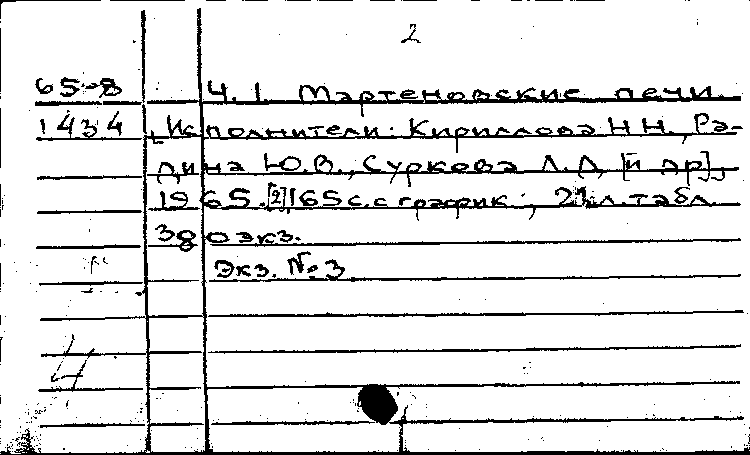 2
65-8 Ч. 1. Мартеновские печи.
1434 [Исполнители: Кириллова Н.Н., Ра-
дина Ю.В., Суркова Л.Д. [и др],
1965. [2], 165 с. с график.; 21 л. табл.
380 экз.
Экз. № 3
4